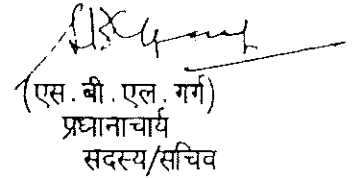 (एस. बी. एल. गर्ग)
प्रधानाचार्य
सदस्य/सचिव